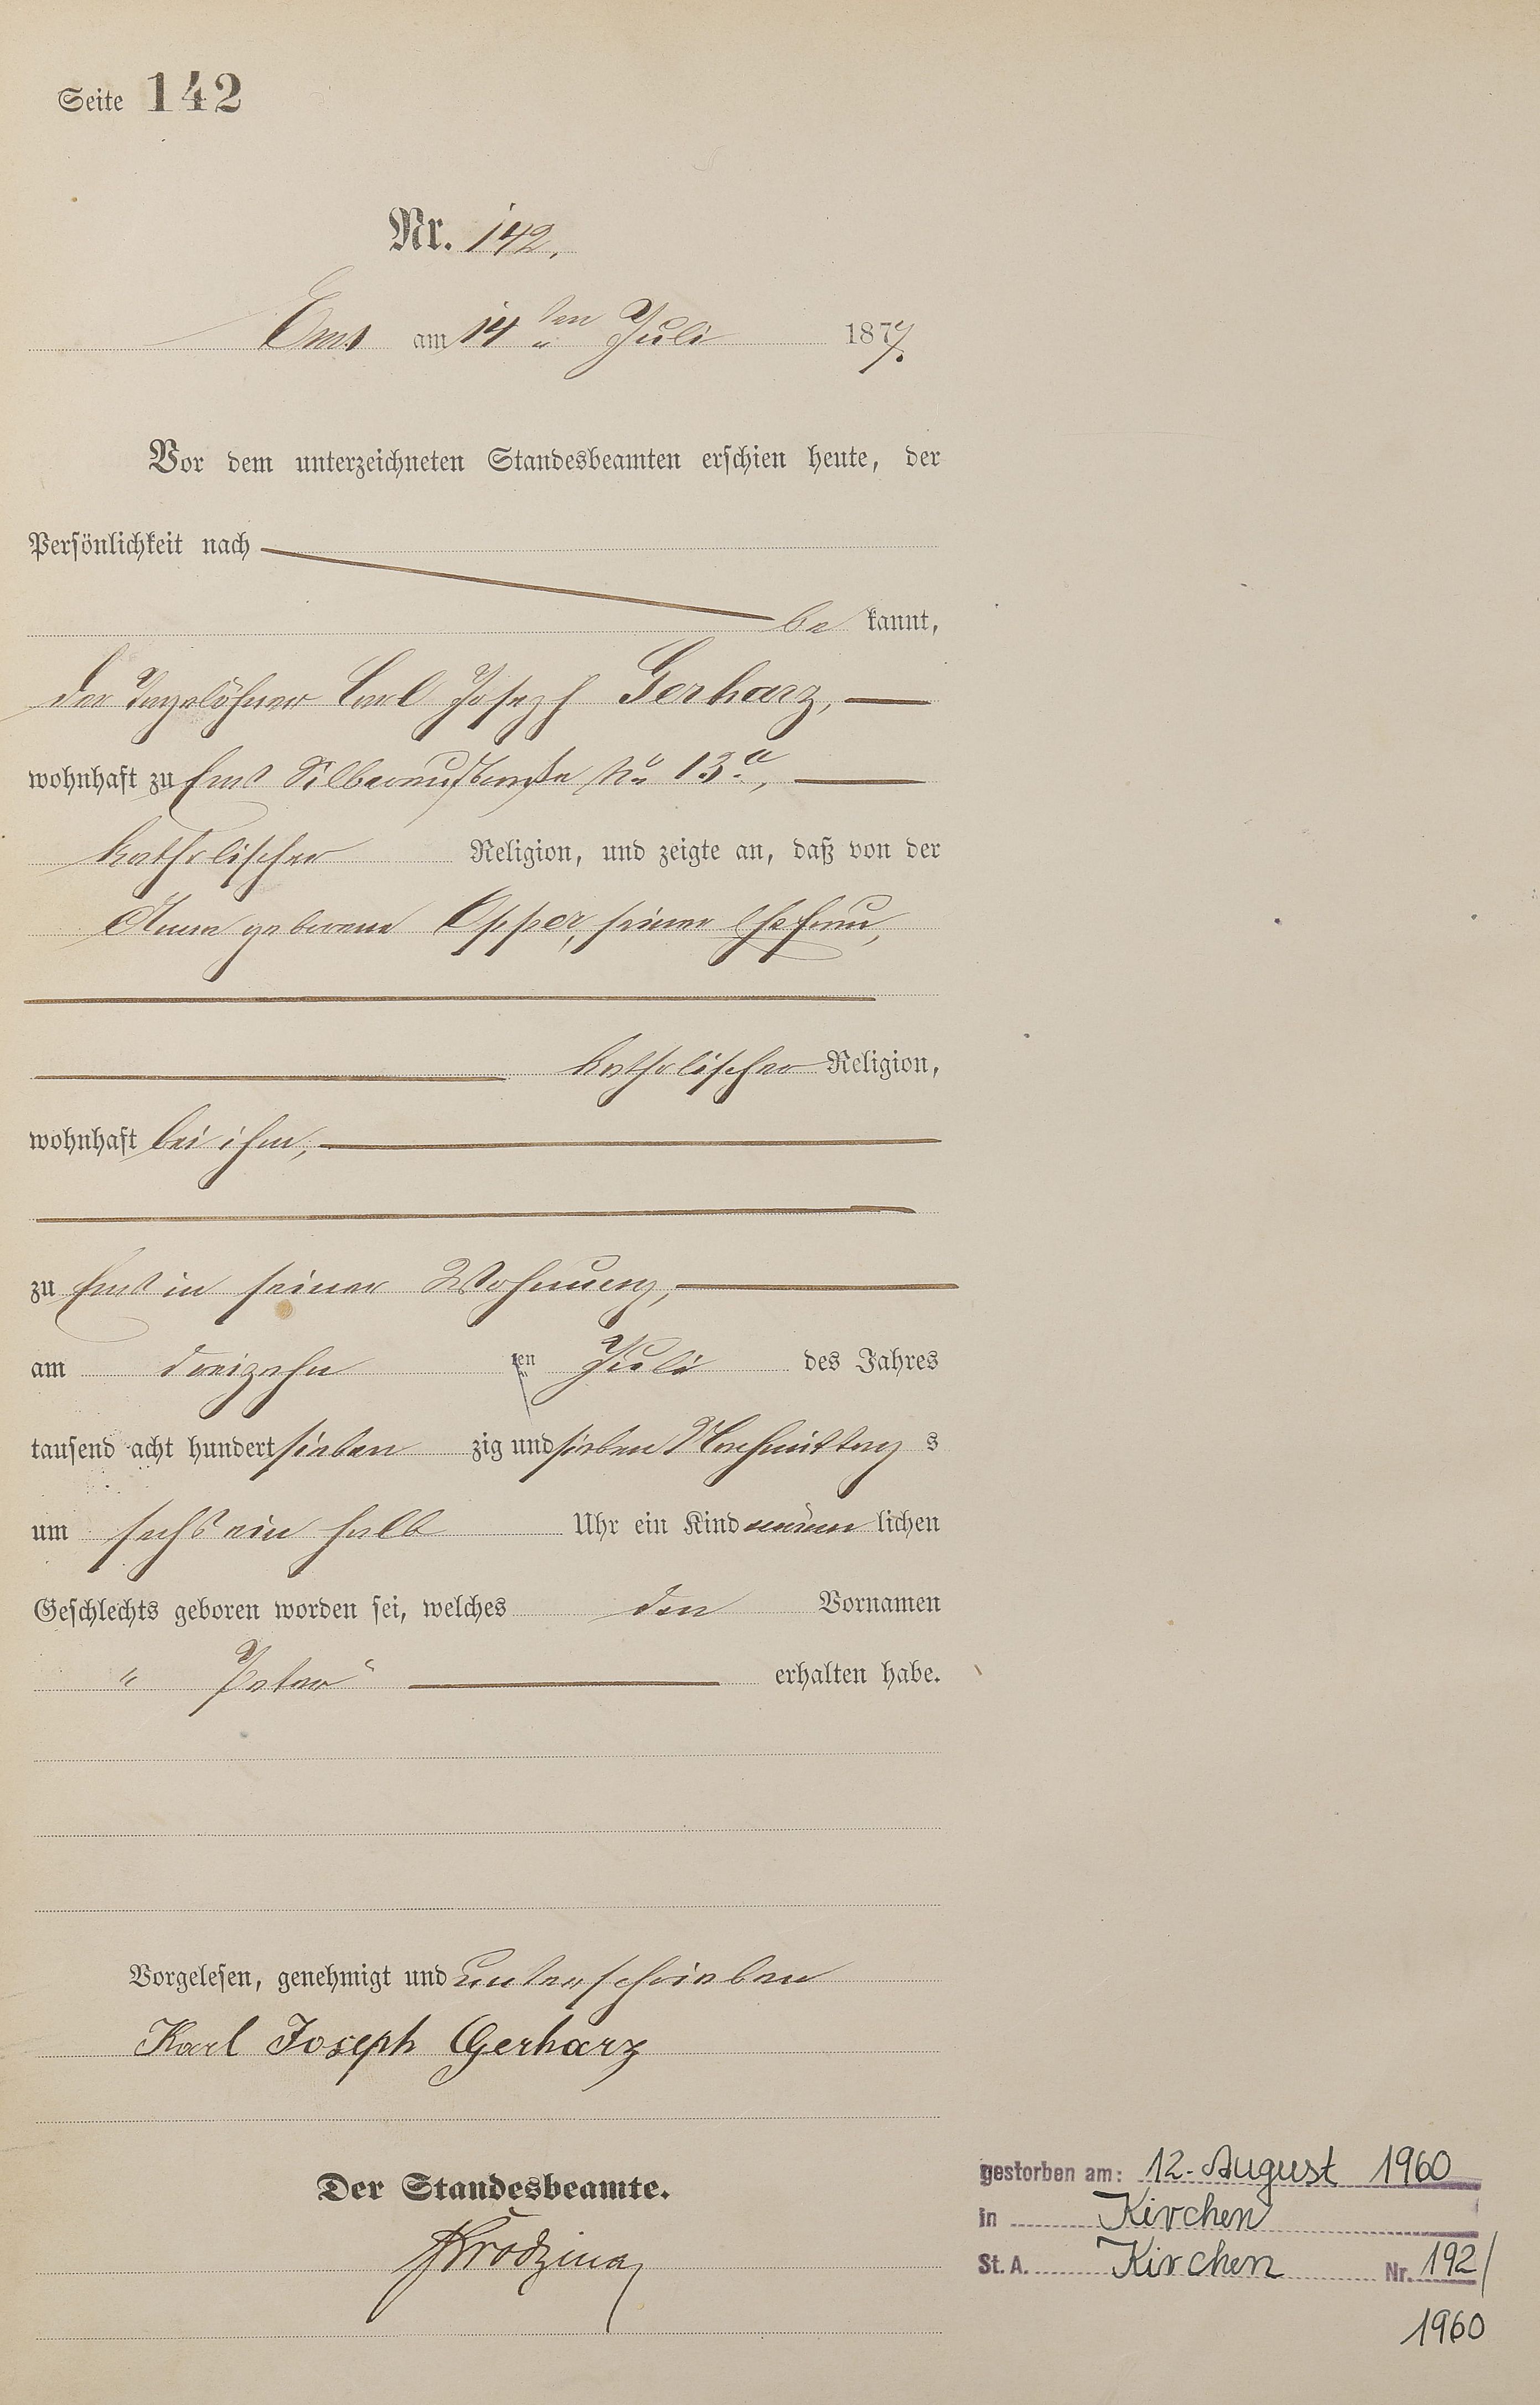 Seite 142
Nr. 142.
Ems am 14ten Juli 1877.
Vor dem unterzeichneten Standesbeamten erschien heute, der
Persönlichkeit nach
be kannt,
der Tagelöhner Carl Joseph Gerharz,
wohnhaft zu Ems Silberaustraße No 13a,
katholischer Religion, und zeigte an, daß von der
Anna geborene Opper, seiner Ehefrau,
katholischer Religion,
wohnhaft bei ihm,
zu Ems in seiner Wohnung,
am dreizehn ten Juli des Jahres
tausend acht hundert sieben zig und sieben Nachmittag s
um sechs ein halb Uhr ein Kind männ lichen
Geschlechts geboren worden sei, welches den Vornamen
„ Peter“ erhalten habe.
Vorgelesen, genehmigt und unterschrieben
Karl Joseph Gerharz
Der Standesbeamte.
gestorben am: 12. August 1960
in Kirchen
St. A. Kirchen Nr. 192/
1960